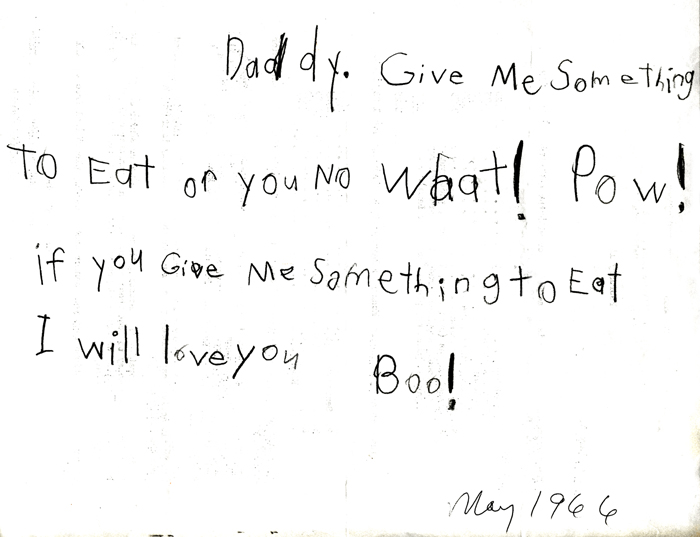 Daddy. Give Me Something
To Eat or you No What! Pow!
if you Give Me Something to Eat
I will love you Boo!
May 1966